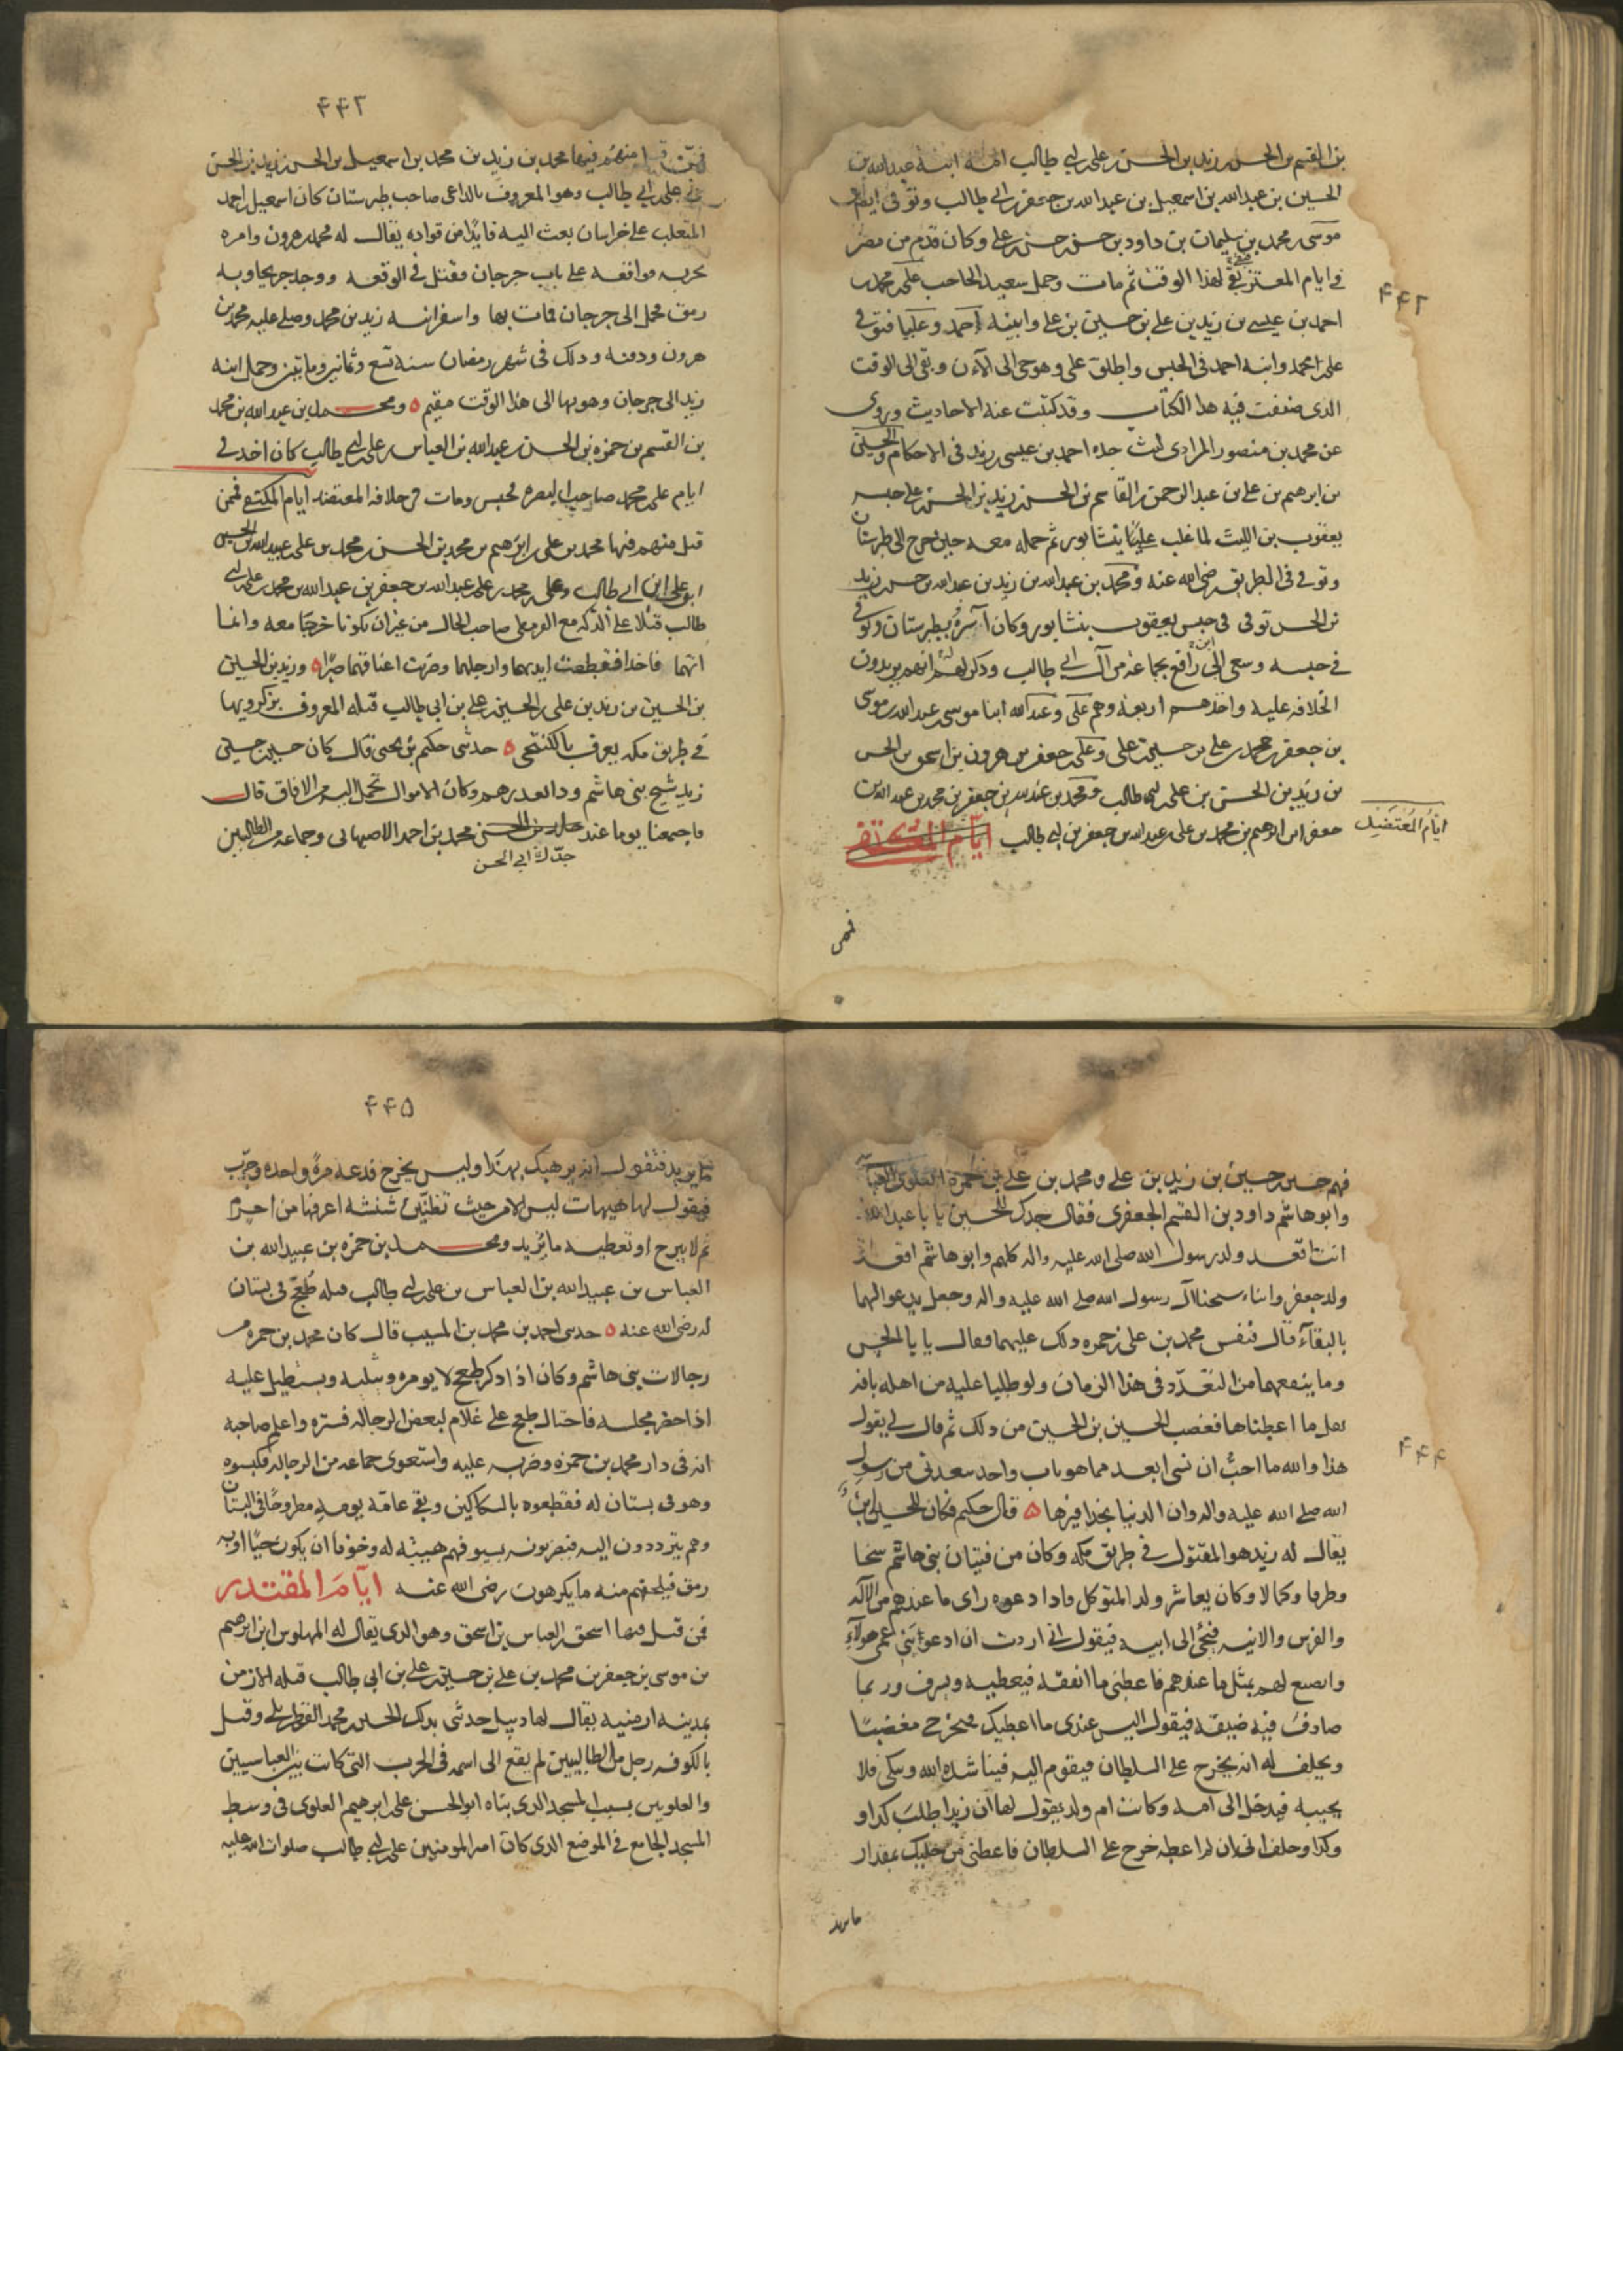 بن القسم بن الحسن بن زيد بن الحسن بن علي بن ابي طالب امه ابنة عبد الله بن
الحسين بن عبد الله بن اسمعيل بن عبد الله بن جعفر بن ابي طالب وتوفي ايام
موسى بن محمد بن سليمان بن داود بن حسن بن حسن بن علي وكان قدم من مصر
في ايام المعتز بقي لهذا الوقت ثم مات وحمل سعيد الحاجب علي بن محمد بن
احمد بن عيسى بن زيد بن علي بن حسين بن علي وابنيه احمد وعليا فتوفي
علي بن محمد وابنه احمد في الحبس واطلق علي وهو حي الى الآن وبقي الى الوقت
الذي صنفت فيه هذا الكتاب وقد كتبت عنه الاحاديث وروى
عن محمد بن منصور المرادي كتب جده احمد بن عيسى بن زيد في الاحكام والحسين
بن ابرهيم بن علي بن عبد الرحمن بن القاسم بن الحسن بن زيد بن الحسن بن علي حبسه
يعقوب بن الليث لما غلب على نيسابور ثم حمله معه حين خرج الى طبرستان
وتوفي في الطريق رضي الله عنه ومحمد بن عبد الله بن زيد بن عبد الله بن حسن بن زيد
بن الحسن توفي في حبس يعقوب بنيشابور وكان اسره بطبرستان وتوفي
في حبسه وسعى الى ابن رافع بجماعة من آل ابي طالب وذكر لهم انهم يريدون
الخلافه عليه واخذهم اربعة وهم علي وعبد الله ابنا موسى بن عبد الله بن موسى
بن جعفر بن محمد بن علي بن حسين بن علي وعلي بن جعفر بن هرون بن اسحق بن الحسن
بن زيد بن الحسن بن علي بن ابي طالب ومحمد بن عبد الله بن جعفر بن محمد بن عبد الله بن
جعفر ابن ابرهيم بن محمد بن علي بن عبد الله بن جعفر بن ابي طالب ايام المكتفى
ايام المعتضد
فمن
۴۴۲
۴۴۳
فمن قتل منهم فيها محمد بن زيد بن محمد بن اسمعيل بن الحسن بن زيد بن الحسن
بن علي بن ابي طالب وهو المعروف بالداعي صاحب طبرستان كان اسمعيل بن احمد
المتغلب على خراسان بعث اليه قايدا من قواده يقال له محمد بن هرون وامره
بحربه فواقعه على باب جرجان فقتل في الوقعه ووجد جريحا وبه
رمق فحمل الى جرجان فمات بها واسر ابنه زيد بن محمد وصلى عليه محمد بن
هرون ودفنه وذلك في شهر رمضان سنة تسع وثمانين ومايتين وحمل ابنه
زيد الى جرجان وهو بها الى هذا الوقت مقيم ۵ ومحمد بن عبد الله بن محمد
بن القسم بن حمزه بن الحسن بن عبيد الله بن العباس بن علي بن ابي طالب كان اخذ في
ايام علي بن محمد صاحب البصره فحبس ومات في خلافه المعتضد ايام المكتفى فممن
قتل منهم فيها محمد بن علي بن ابرهيم بن محمد بن الحسن بن محمد بن علي بن عبيد الله بن الحسين
بن علي ابن ابي طالب وعلي بن محمد بن علي بن عبد الله بن جعفر بن عبد الله بن محمد بن علي بن ابي
طالب قتلا على الدكه مع القرمطي صاحب الخال من غير ان يكونا خرجا معه وانما
اتهما فاخذا فقطعت ايديهما وارجلهما وضربت اعناقهما صبرا ۵ وزيد بن الحسين
بن الحسين بن زيد بن علي بن الحسين بن علي بن ابي طالب قتله المعروف بزكرويها
في طريق مكه يعرف بالكنتجي ۵ حدثني حكيم بن يحيى قال كان حسين بن حسين بن
زيد شيخ بني هاشم وذا قعددهم وكان الاموال تحمل اليه من الافاق قال
فاجتمعنا يوما عند محمد بن احمد الاصبهاني وجماعه من الطالبيين
جدك ابي الحسن
فهم حسين بن حسين بن زيد بن علي ومحمد بن علي بن حمزه العلوي العباسي
وابو هاشم داود بن القسم الجعفري فقال جدك للحسين يا با عبد الله
انت اقعد ولد رسول الله صلى الله عليه واله كلهم وابو هاشم اقعد
ولد جعفر وانتما شيخا آل رسول الله صلى الله عليه واله وجعل يدعو لهما
بالبقاء قال فنفس محمد بن علي بن حمزه ذلك عليهما وقال يا با الحسن
وما ينفعهما من القعدد في هذا الزمان ولو طلبا عليه من اهله باقة
بقل ما اعطياها فغضب الحسين بن الحسين من ذلك ثم قال لي يقول
هذا والله ما احب ان نسبي ابعد مما هو باب واحد يبعدني من رسول
الله صلى الله عليه واله وان الدنيا بحذافيرها ۵ قال حكيم فكان للحسين ابن
يقال له زيد هو المقتول في طريق مكه وكان من فتيان بني هاشم سخا
وظرفا وكمالا وكان يعاشر ولد المتوكل فاذا دعوه راى ما عندهم من الآله
والفرش والانيه فيجئ الى ابيه فيقول اني اردت ان ادعو بني عمي هولاء
واصنع لهم بمثل ما عندهم فاعطني ما انفقه فيعطيه ويسرف وربما
صادف فيه ضيقه فيقول ليس عندي ما اعطيك فيخرج مغضبا
ويحلف له انه يخرج على السلطان فيقوم اليه فيناشده الله ويبكي فلا
يجيبه فيدخل الى امه وكانت ام ولد يقول لها ان زيدا طلب كذا و
وكذا وحلف اني ان لم اعطه خرج على السلطان فاعطني من حليك بمقدار
ما يريد
۴۴۴
۴۴۵
ما يريد فتقول انه يرهبك بهذا وليس يخرج فدعه مرة واحده وجرب
فيقول لها هيهات ليس الامر حيث تظنين شنشنة اعرفها من اخزم
ثم لا يبرح او تعطيه ما يريد ومحمد بن حمزه بن عبيد الله بن
العباس بن عبيد الله بن العباس بن علي بن ابي طالب قتله طغج في بستان
له رضي الله عنه ۵ حدثني احمد بن محمد بن المسيب قال كان محمد بن حمزه من
رجالات بني هاشم وكان اذا ذكر طغج لا يومره وسلبه ويستطيل عليه
اذا حضر مجلسه فاحتال طغج على غلام لبعض الرجاله فستره واعلم صاحبه
انه في دار محمد بن حمزه وضربه عليه واستعوى جماعه من الرجاله فكبسوه
وهو في بستان له فقطعوه بالسكاكين وبقي عامة يومه مطروحا في البستان
وهم يترددون اليه فيضربونه بسيوفهم هيبة له وخوفا ان يكون حيا او به
رمق فيلحقهم منه ما يكرهون رضي الله عنه ايام المقتدر
فمن قتل فيها اسحق العباس بن اسحق وهو الذي يقال له المهلوس ابن ابرهيم
بن موسى بن جعفر بن محمد بن علي بن حسين بن علي بن ابي طالب قتله الارمن
بمدينه ارمنيه يقال لها دبيل حدثني بذلك الحسين بن محمد القطربلي وقتل
بالكوفه رجل من الطالبيين لم يقع الى اسمه في الحرب التي كانت بين العباسيين
والعلويين بسبب المسجد الذي بناه ابو الحسن علي بن ابرهيم العلوي في وسط
المسجد الجامع في الموضع الذي كان امير المومنين علي بن ابي طالب صلوات الله عليه